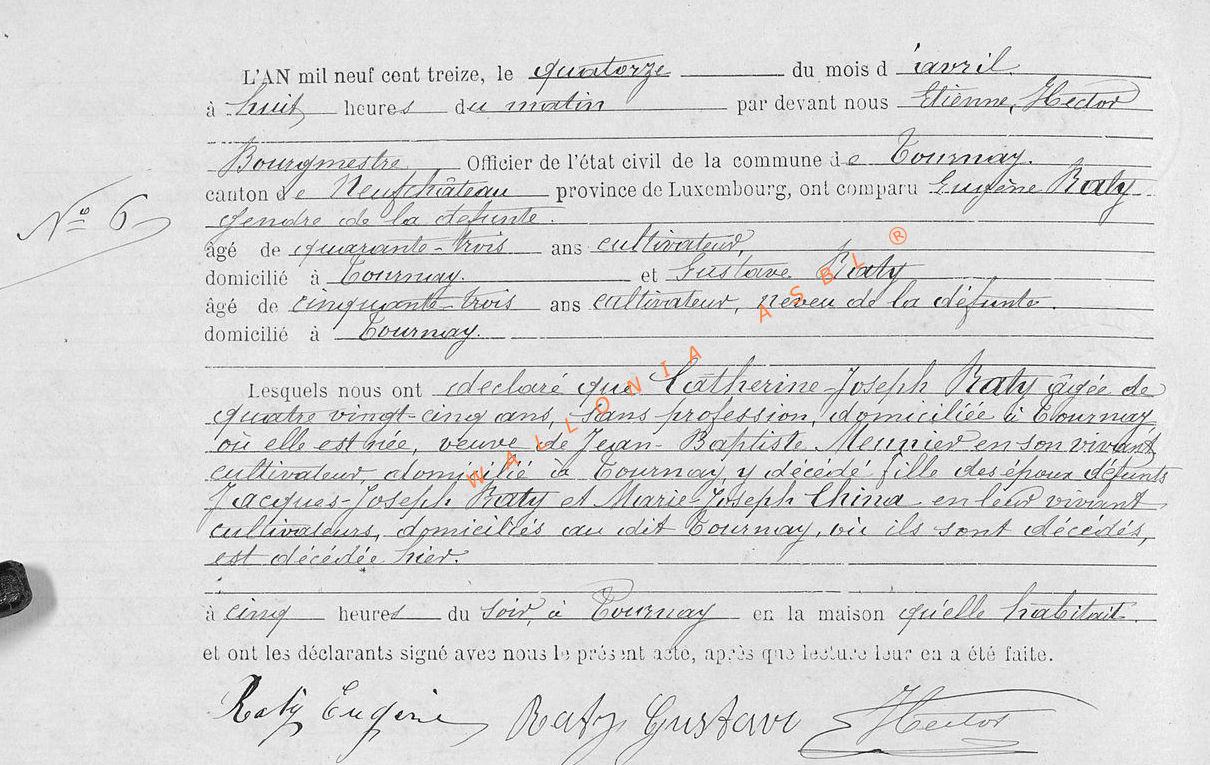 L'AN mil neuf cent treize, le quatorze du mois d'avril
à huit heures du matin par devant nous Etienne, Hector
Bourgmestre Officier de l'état civil de la commune de Tournay.
canton de Neufchâteau province de Luxembourg, ont comparu Eugène Raty
gendre de la défunte.
N° 6
âgé de quarante-trois ans cultivateur,
domicilié à Tournay. et Gustave Raty
âgé de cinquante-trois ans cultivateur, neveu de la défunte.
domicilié à Tournay.
Lesquels nous ont déclaré que Catherine-Joseph Raty âgée de
quatre vingt-cinq ans, sans profession, domiciliée à Tournay,
où elle est née, veuve de Jean-Baptiste Meunier en son vivant
cultivateur, domicilié à Tournay, y décédé fille des époux défunts
Jacques-Joseph Raty et Marie-Joseph China en leur vivant
cultivateurs, domiciliés au dit Tournay, où ils sont décédés,
est décédée hier.
à cinq heures du soir, à Tournay en la maison qu'elle habitait.
et ont les déclarants signé avec nous le présent acte, après que lecture leur en a été faite.
Raty Eugène Raty Gustave Hector
WALLONIA ASBL ®